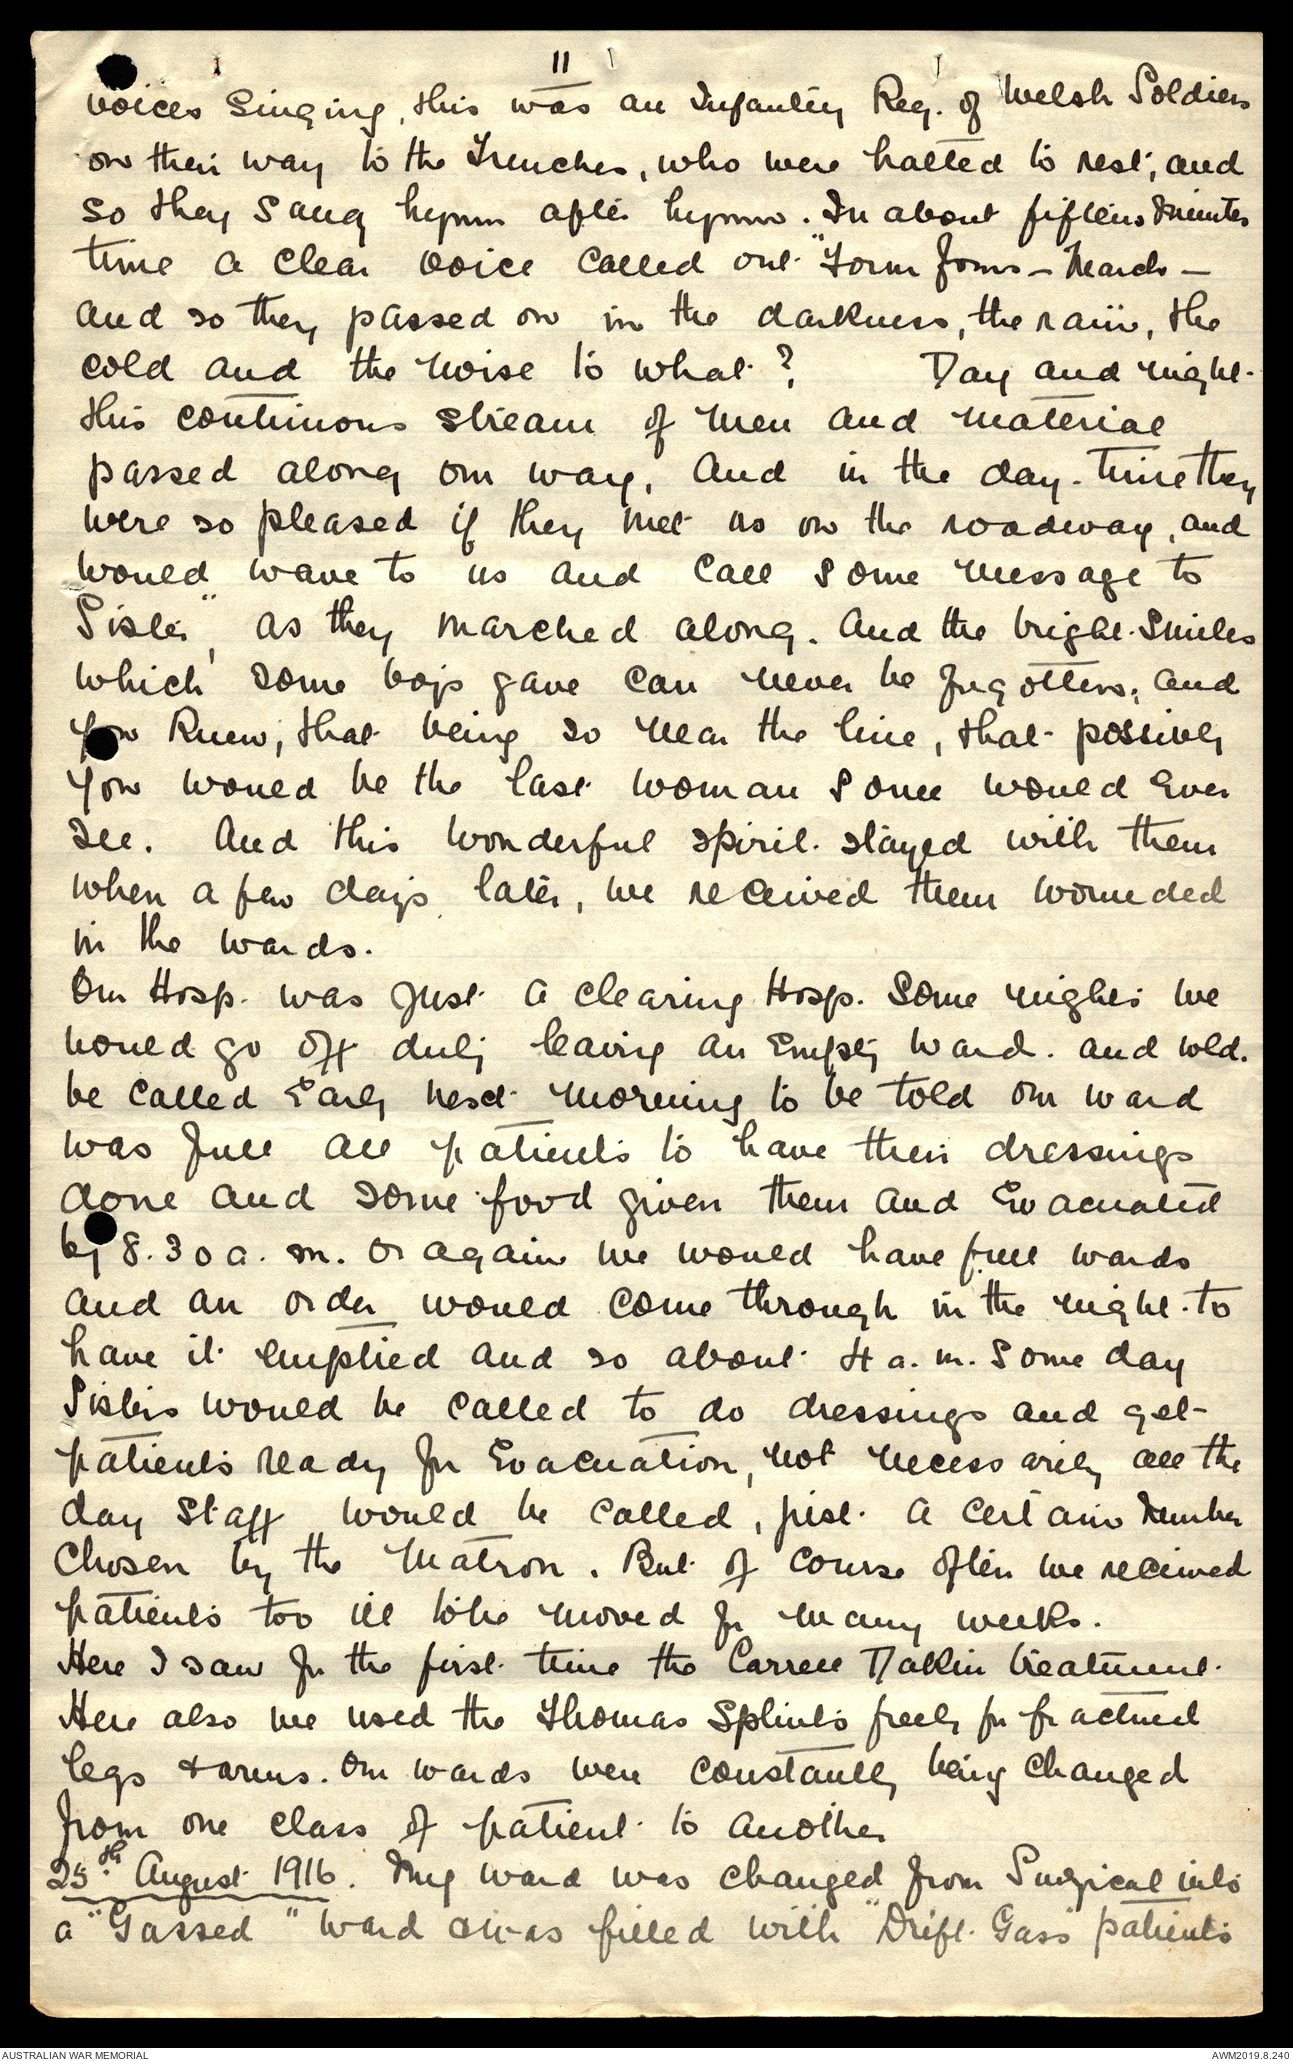 11
voices singing, this was an Infantry Reg. of Welsh Soldiers
on their way to the Trenches, who were halted to rest, and
so they sang hymn after hymn. In about fifteen minutes
time a clear voice called out "Form fours - March -
and so they passed on in the darkness, the rain, the
cold and the noise to what? Day and night
this continuous stream of men and material
passed along our way, and in the day-time they
were so pleased if they met us on the roadway, and
would wave to us and call some message to
"Sister", as they marched along. And the bright smiles
which some boys gave can never be forgotten, and
you knew, that being so near the line, that possibly
you would be the last woman some would ever
see. And this wonderful spirit stayed with them
when a few days later, we received them wounded
in the wards.
Our Hosp. was just a clearing Hosp. Some nights we
would go off duty leaving an empty ward. and wld.
be called early next morning to be told our ward
was full all patients to have their dressings
done and some food given them and evacuated
by 8.30 a.m. or again we would have full wards
and an order would come through in the night to
have it emptied and so about 4 a.m. some day
Sisters would be called to do dressings and get
patients ready for evacuation, not necessarily all the
day staff would be called, just a certain number
chosen by the Matron. But of course often we received
patients too ill to be moved for many weeks.
Here I saw for the first time the Carrell Dakin treatment.
Here also we used the Thomas Splints freely for fractured
legs & arms. Our wards were constantly being changed
from one class of patient to another
25th August 1916. My ward was changed from Surgical into
a "Gassed" ward & was filled with "Drift Gass" patients
AUSTRALIAN WAR MEMORIAL
AWM2019.8.240